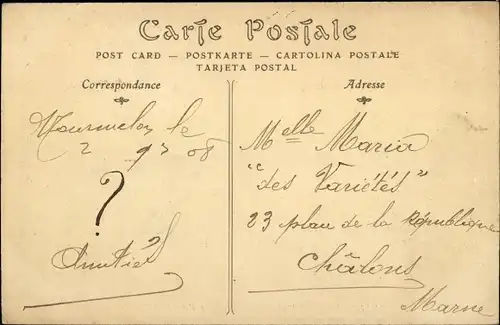 Carte Postale
POST CARD — POSTKARTE — CARTOLINA POSTALE
TARJETA POSTAL
Correspondance
Mourmelon le
2 9 08
?
Amitiés
Adresse
Melle Maria
"des Variétés"
23 place de la République
Châlons
Marne